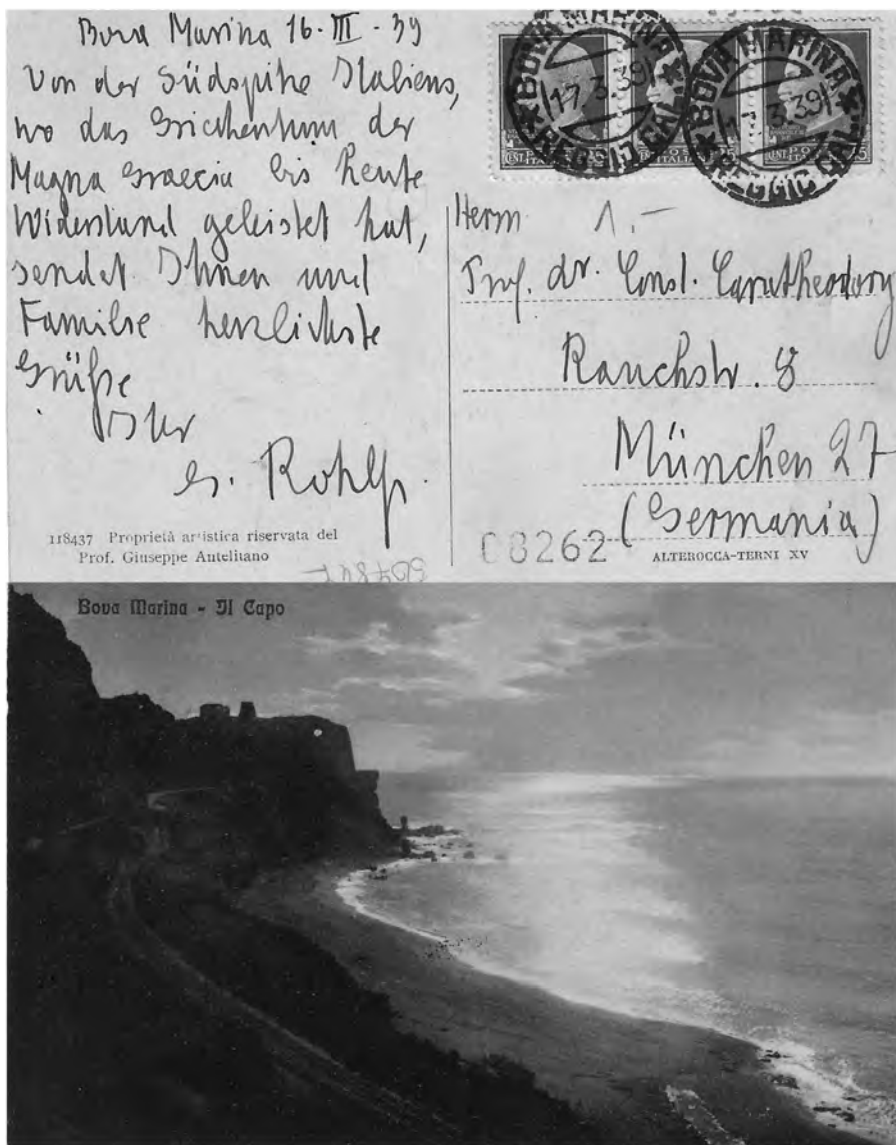 Bova Marina 16-III-39
Von der Südspitze Italiens,
wo das Griechentum der
Magna Graecia bis heute
Widerstand geleistet hat,
sendet Ihnen und
Familie herzlichste
Grüße
Ihr
G. Rohlfs.
118437 Proprietà artistica riservata del
Prof. Giuseppe Autelitano
BOVA MARINA
17.3.39
REGGIO CAL.
BOVA MARINA
3.39
REGGIO CAL.
Herrn 1.-
Prof. Dr. Const. Caratheodory
Rauchstr. 8
München 27
(Germania)
08262
ALTEROCCA-TERNI XV
Bova Marina - Il Capo